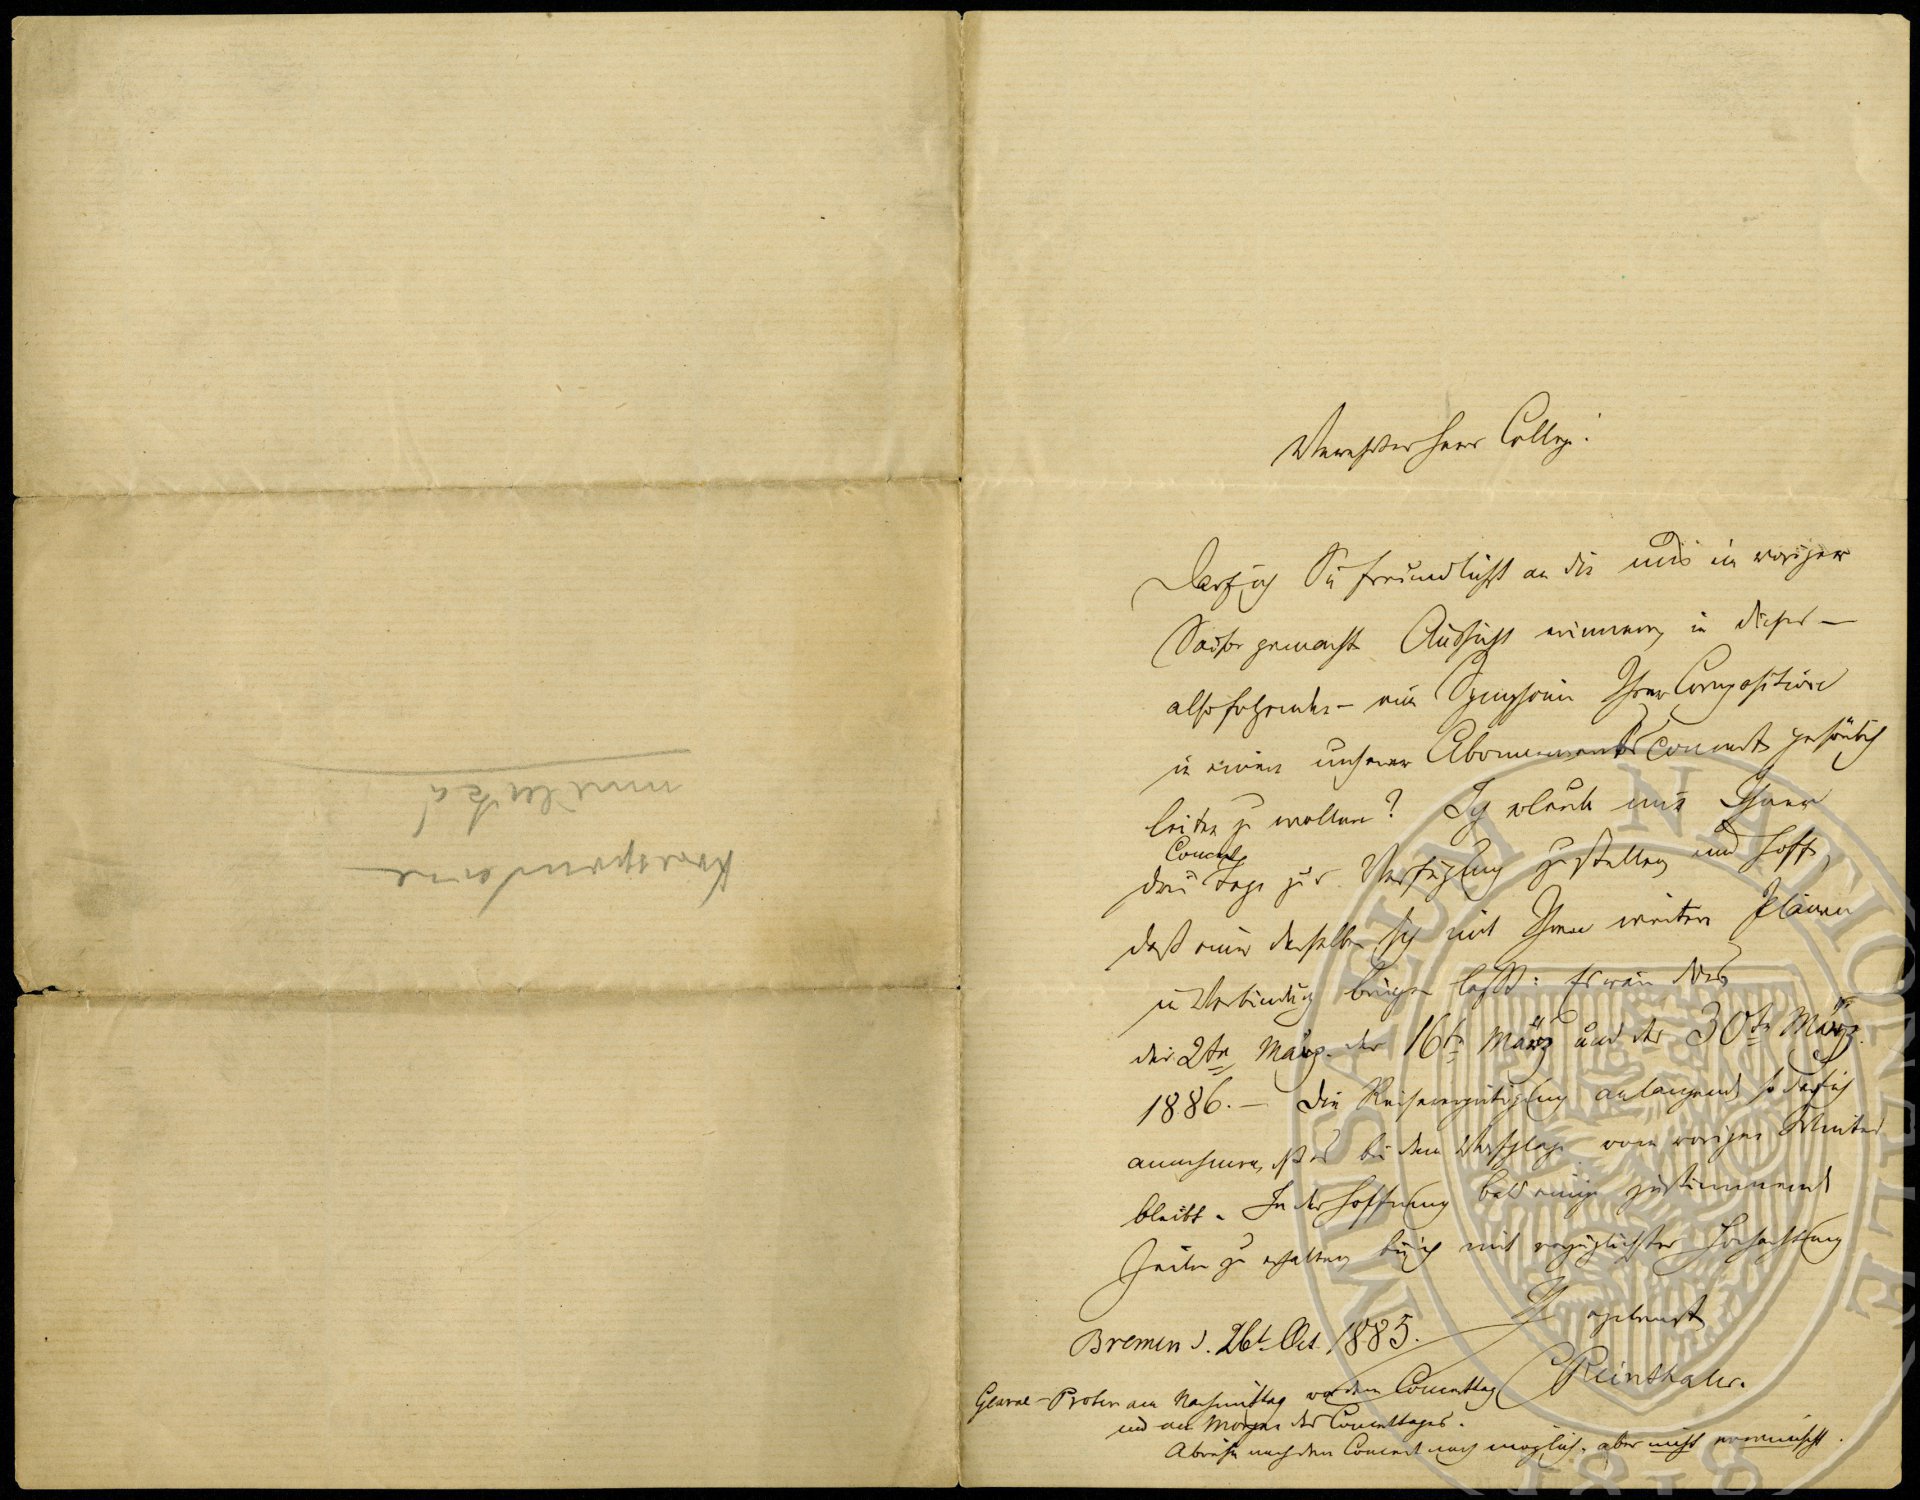 Korrespondence
umělců
Verehrter Herr College!
Darf ich Sie freundlichst an die uns in voriger
Saison gemachte Aussicht erinnern, in dieser –
also folgenden – eine Symphonie Ihrer Composition
in einem unserer Abonnements Concerte persönlich
leiten zu wollen? Ich erlaube mir Ihnen
drei Concert Tage zur Verfügung zu stellen und hoffe,
daß einer derselben sich mit Ihren weitern Plänen
in Verbindung bringen läßt: Es wären dies
der 2te März. der 16te März und der 30te März
1886. – Die Reisevergütigung anlangend so darf ich
annehmen, es bei dem Vorschlage vom vorigen Winter
bleibt. In der Hoffnung bald einige zustimmende
Zeilen zu erhalten bin ich mit vorzüglichster Hochachtung
Ihr ergebenster
Bremen d. 26t Oct. 1885.
CReinthaler.
General-Proben am Nachmittag vor dem Concerttag
und am Morgen des Concerttages.
Abreise nach dem Concert noch möglich, aber nicht erwünscht.
MUSAEUM NATIONALE
1818